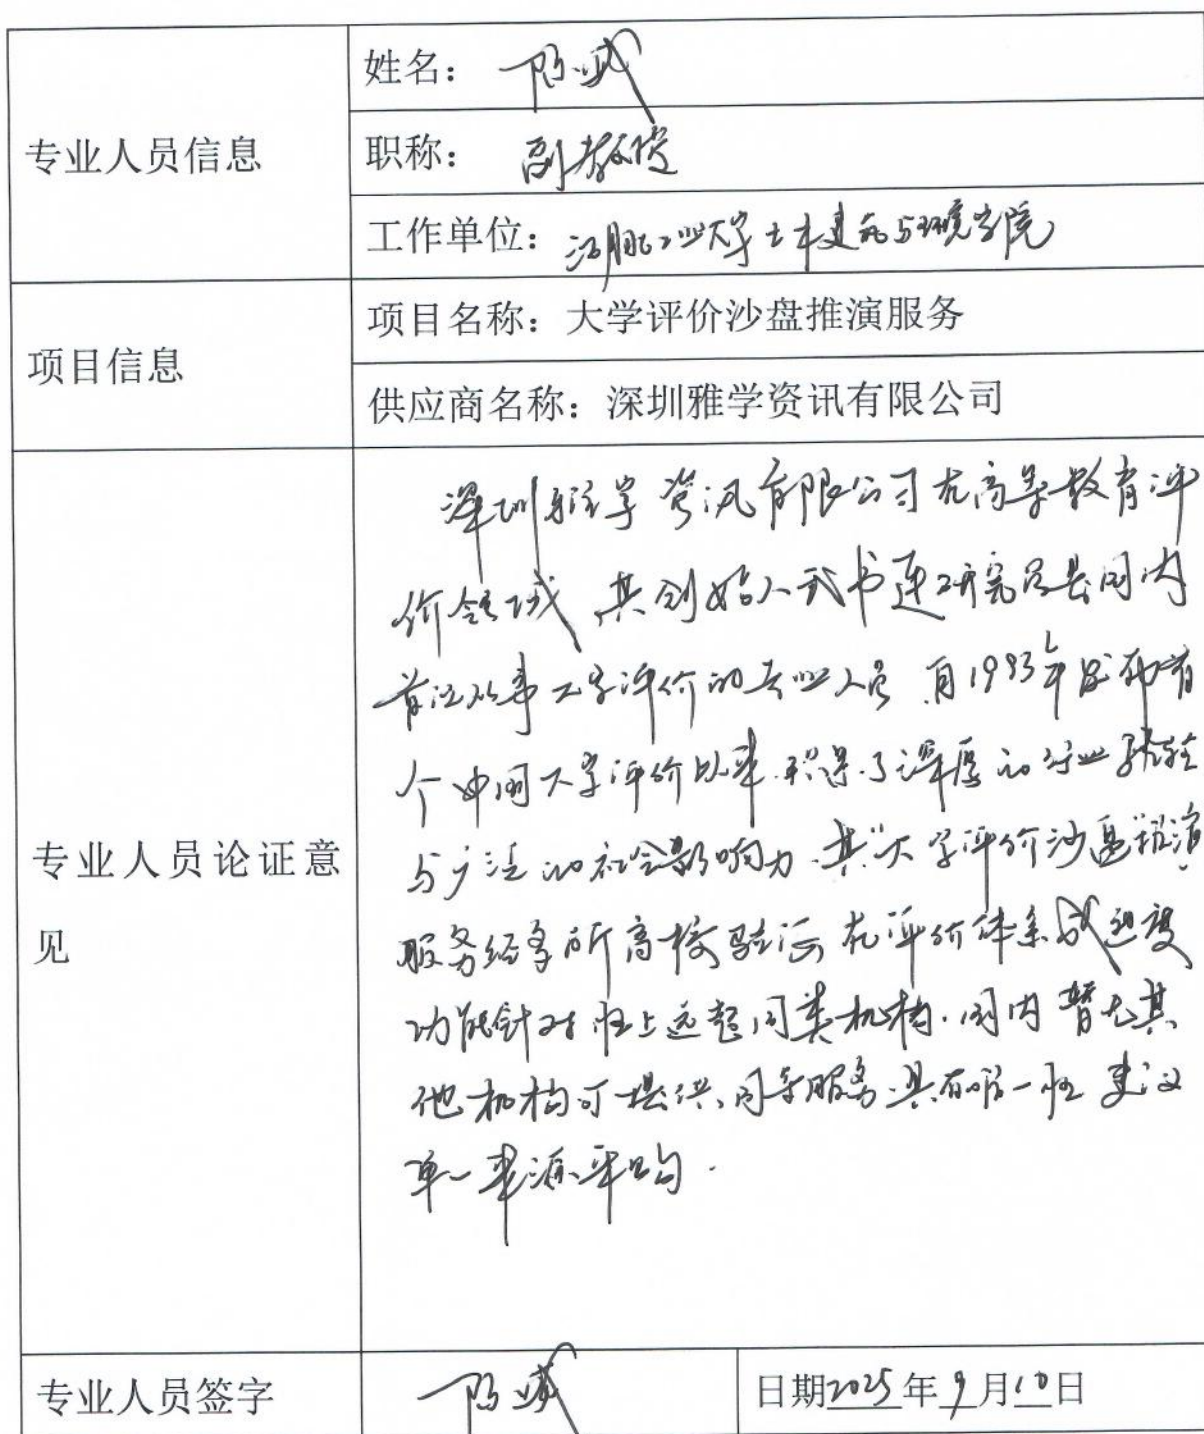 专业人员信息
姓名：
职称：副教授
工作单位：湖北工业大学土木建筑与环境学院
项目信息
项目名称：大学评价沙盘推演服务
供应商名称：深圳雅学资讯有限公司
专业人员论证意见
深圳雅学资讯有限公司在高等教育评
价领域，其创始人武书连研究员是国内
首位从事大学评价的专业人员，自1993年发布首
个中国大学评价以来，积累了深厚的行业经验
与广泛的社会影响力。其“大学评价沙盘推演”
服务经多所高校验证，在评价体系成熟度
功能针对性上远超同类机构，国内暂无其
他机构可提供同等服务，具有唯一性，建议
单一来源采购.
专业人员签字
日期2025年9月10日